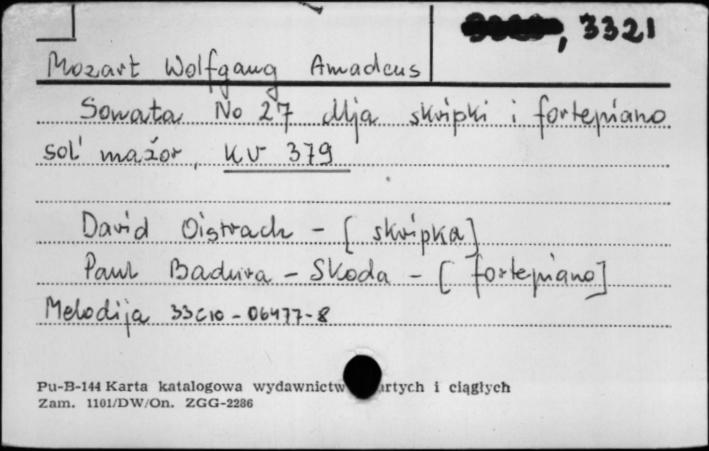 , 3321
Mozart Wolfgang Amadeus
Sonata No 27 dlja skripki i fortepiano
sol' mažor, KV 379
David Oistrach - [skripka]
Paul Badura - Skoda - [fortepiano]
Melodija 33C10-06477-8
Pu-B-144 Karta katalogowa wydawnictw artych i ciągłych
Zam. 1101/DW/On. ZGG-2286